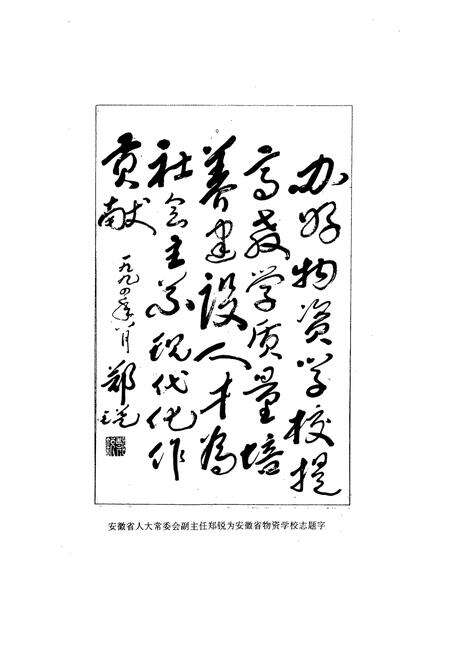 办好物资学校提
高教学质量培
养建设人才为
社会主义现代化作
贡献
一九九四年八月 郑锐
安徽省人大常委会副主任郑锐为安徽省物资学校志题字